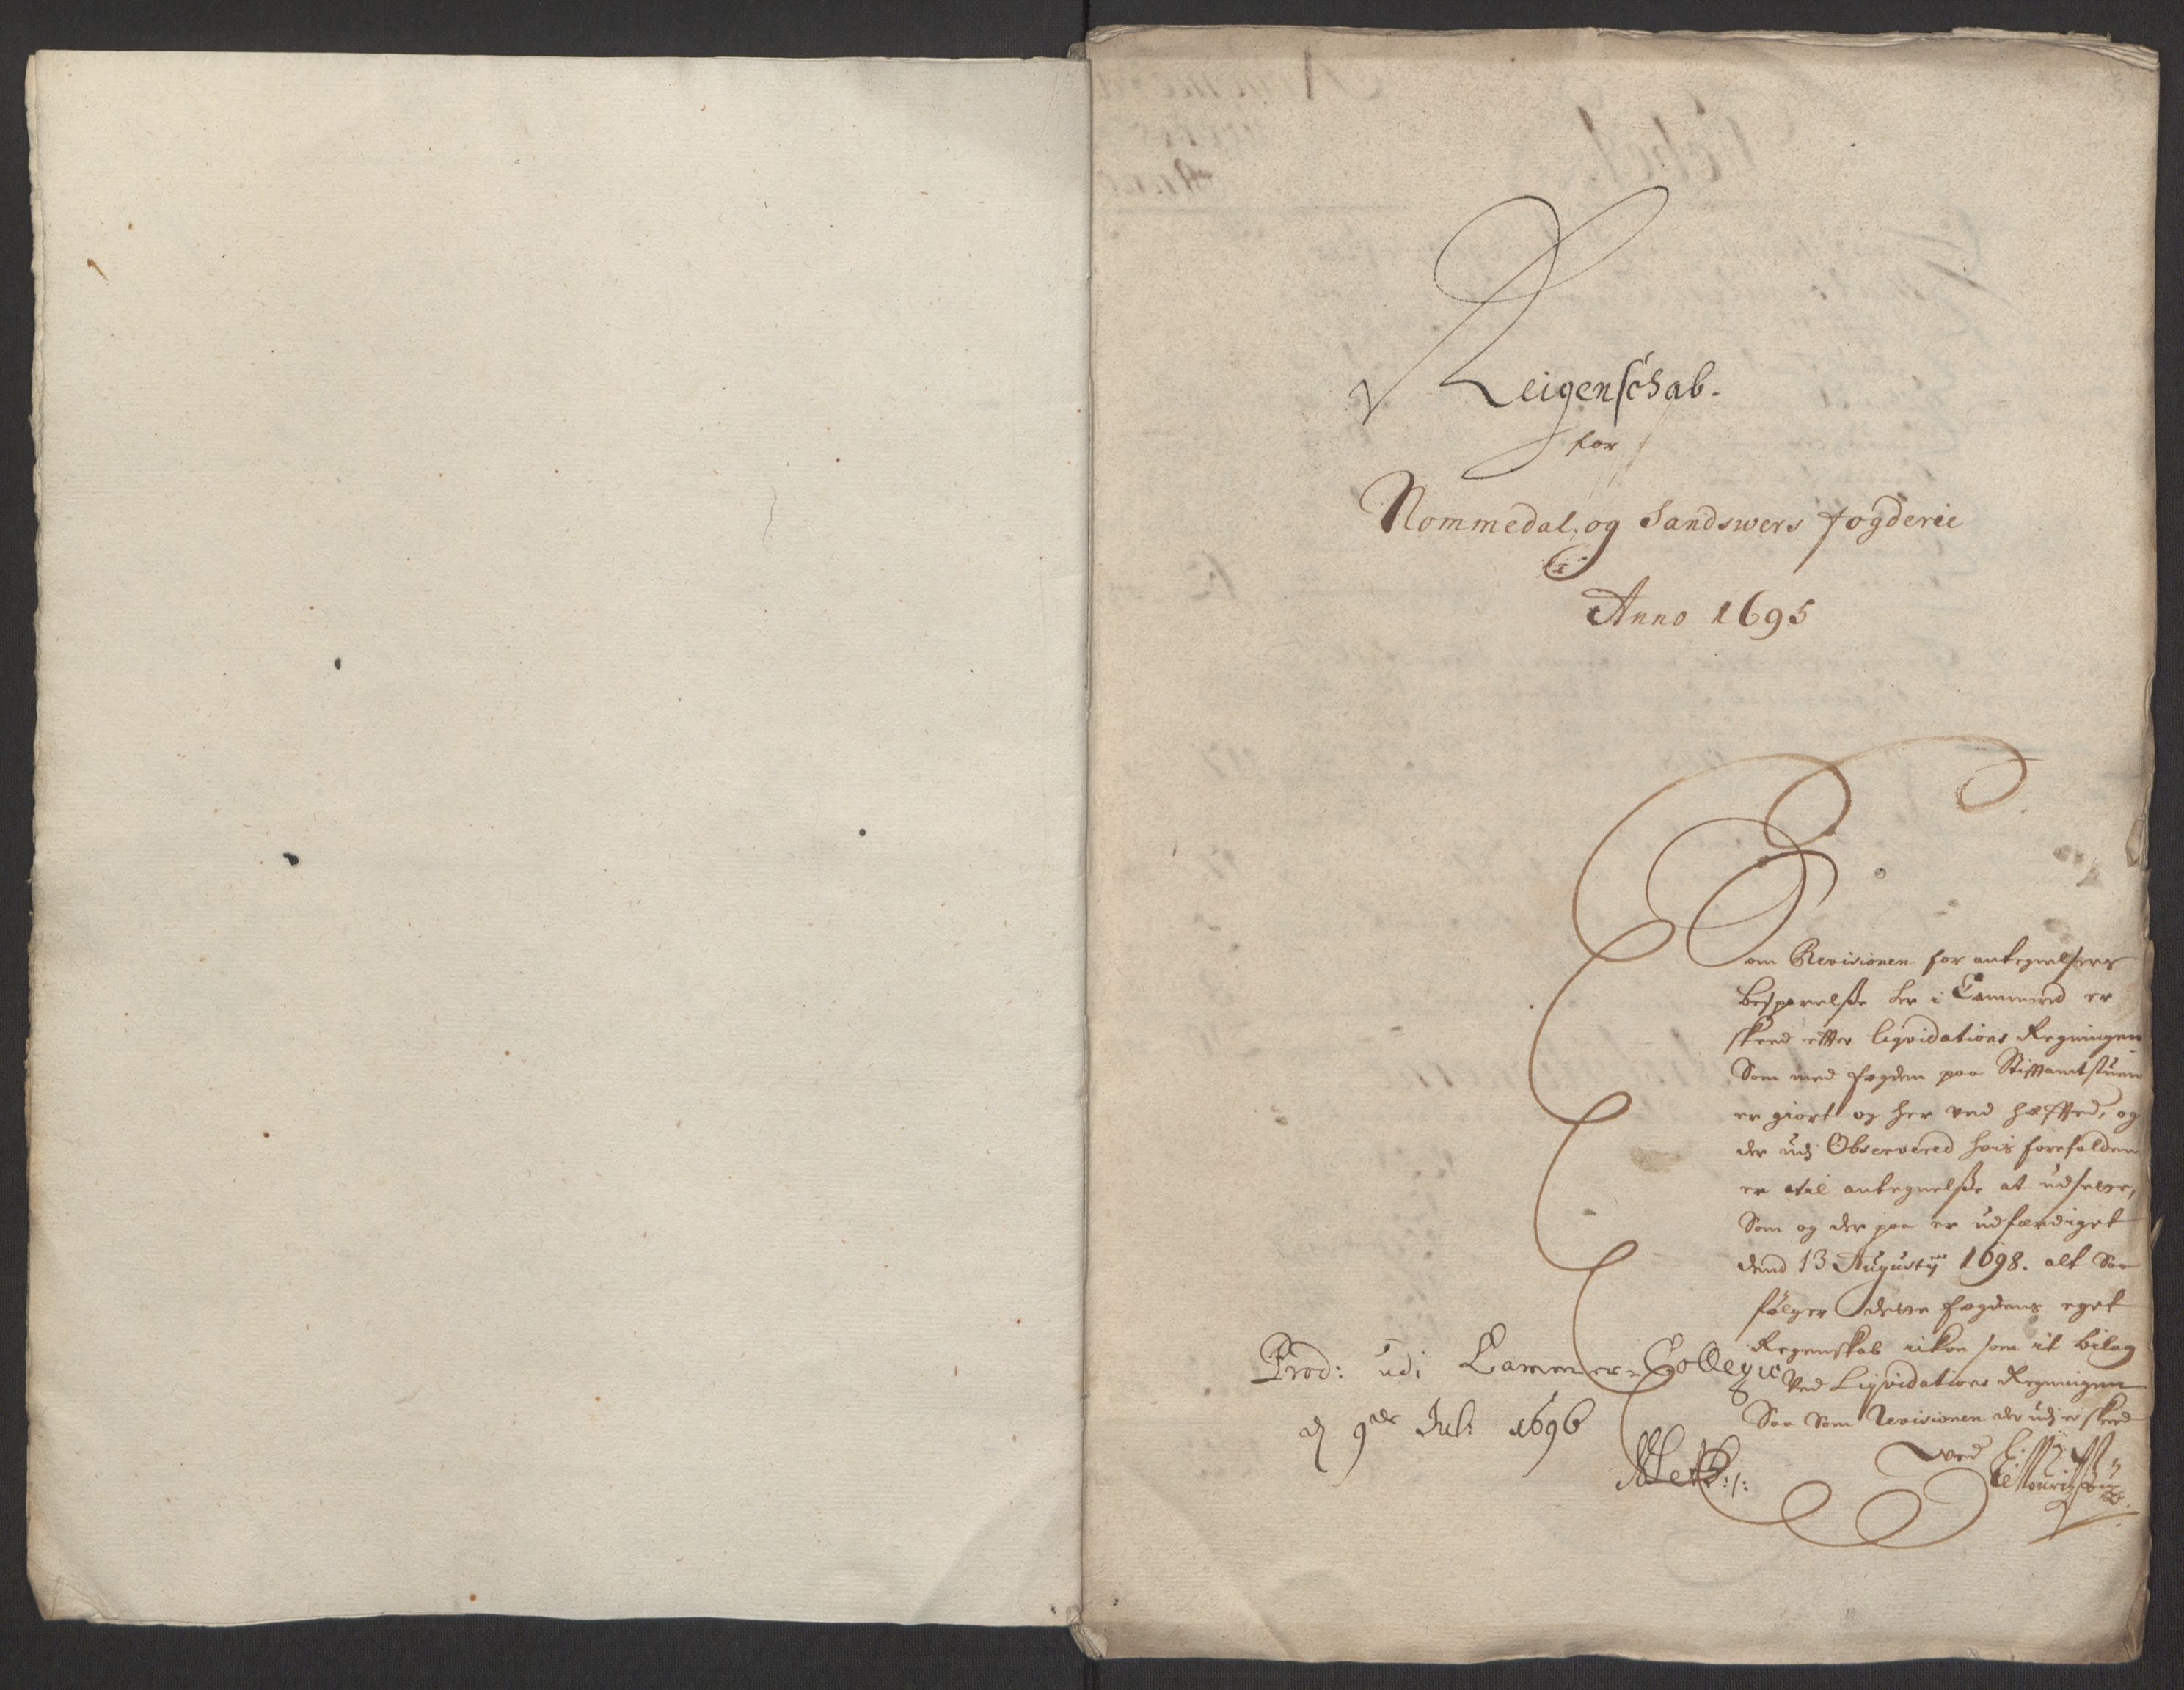 Reigenschab.
for
Nommedal og Sandswers fogderie
Anno 1695
Som Revisionen for antegnelsers
besparelsse her i Cammered er
skeed efter liqvidations Regningen
Som med fogden paa Stifftamtstuen
er giort og her ved hæffted, og
der udj Observered hvis forefalden
er til antegnelsse at udsette,
Som og der paa er udfærdiget
dend 13 Augustij 1698. alt Saa
følger dette fogdens eget
Regenskab ickon som it bilag
Ved Liqvidations Regningen
Saa Som Revisionen der udj er skeed
ved
Prod: udi Cammer-Collegio
d 9de Jul: 1696